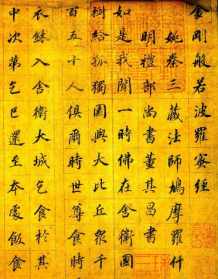 金剛般若波羅蜜經
姚秦三藏法師鳩摩羅什
明禮部尚書董其昌書
如是我聞一時佛在舍衛國
樹給孤獨園與大比丘眾千
百五十人俱爾時世尊食時
衣鉢入舍衛大城乞食於其
中次第乞已還至本處飯食